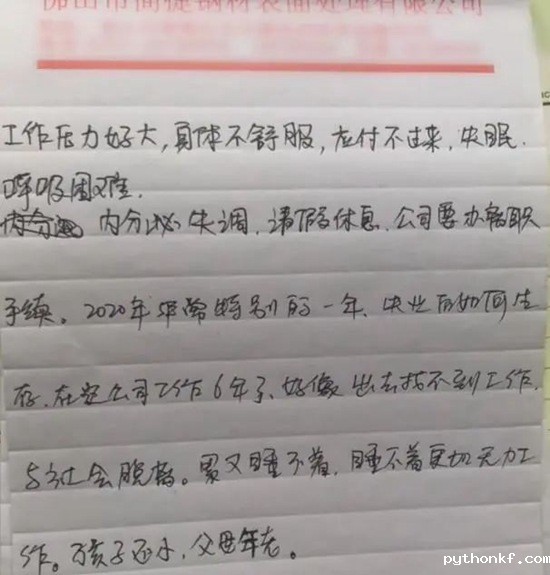 佛山市简捷钢材表面处理有限公司
工作压力好大，身体不舒服，应付不过来，失眠.
呼吸困难.
内分泌失调，请假休息，公司要办辞职
手续。2020年非常特别的一年、失业后如何生
存，在这公司工作6年了、好像出去找不到工作，
与社会脱轨。累又睡不着，睡不着更加无力工
作。孩子还小，父母年老。
pythonkf.com